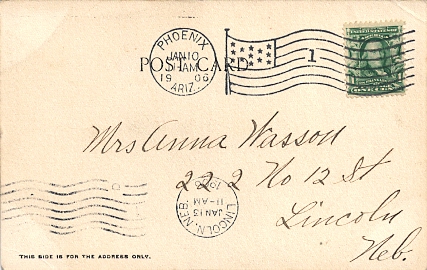 PHOENIX
JAN 10
AM
1906
ARIZ.
POST CARD
1
Mrs Anna Wasson
222 No 12 St
Lincoln
Neb.
LINCOLN, NEB.
JAN 13
11-AM
1906
THIS SIDE IS FOR THE ADDRESS ONLY.